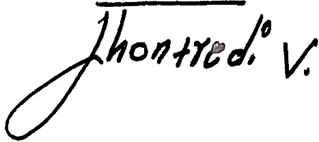 Jhontredº V.